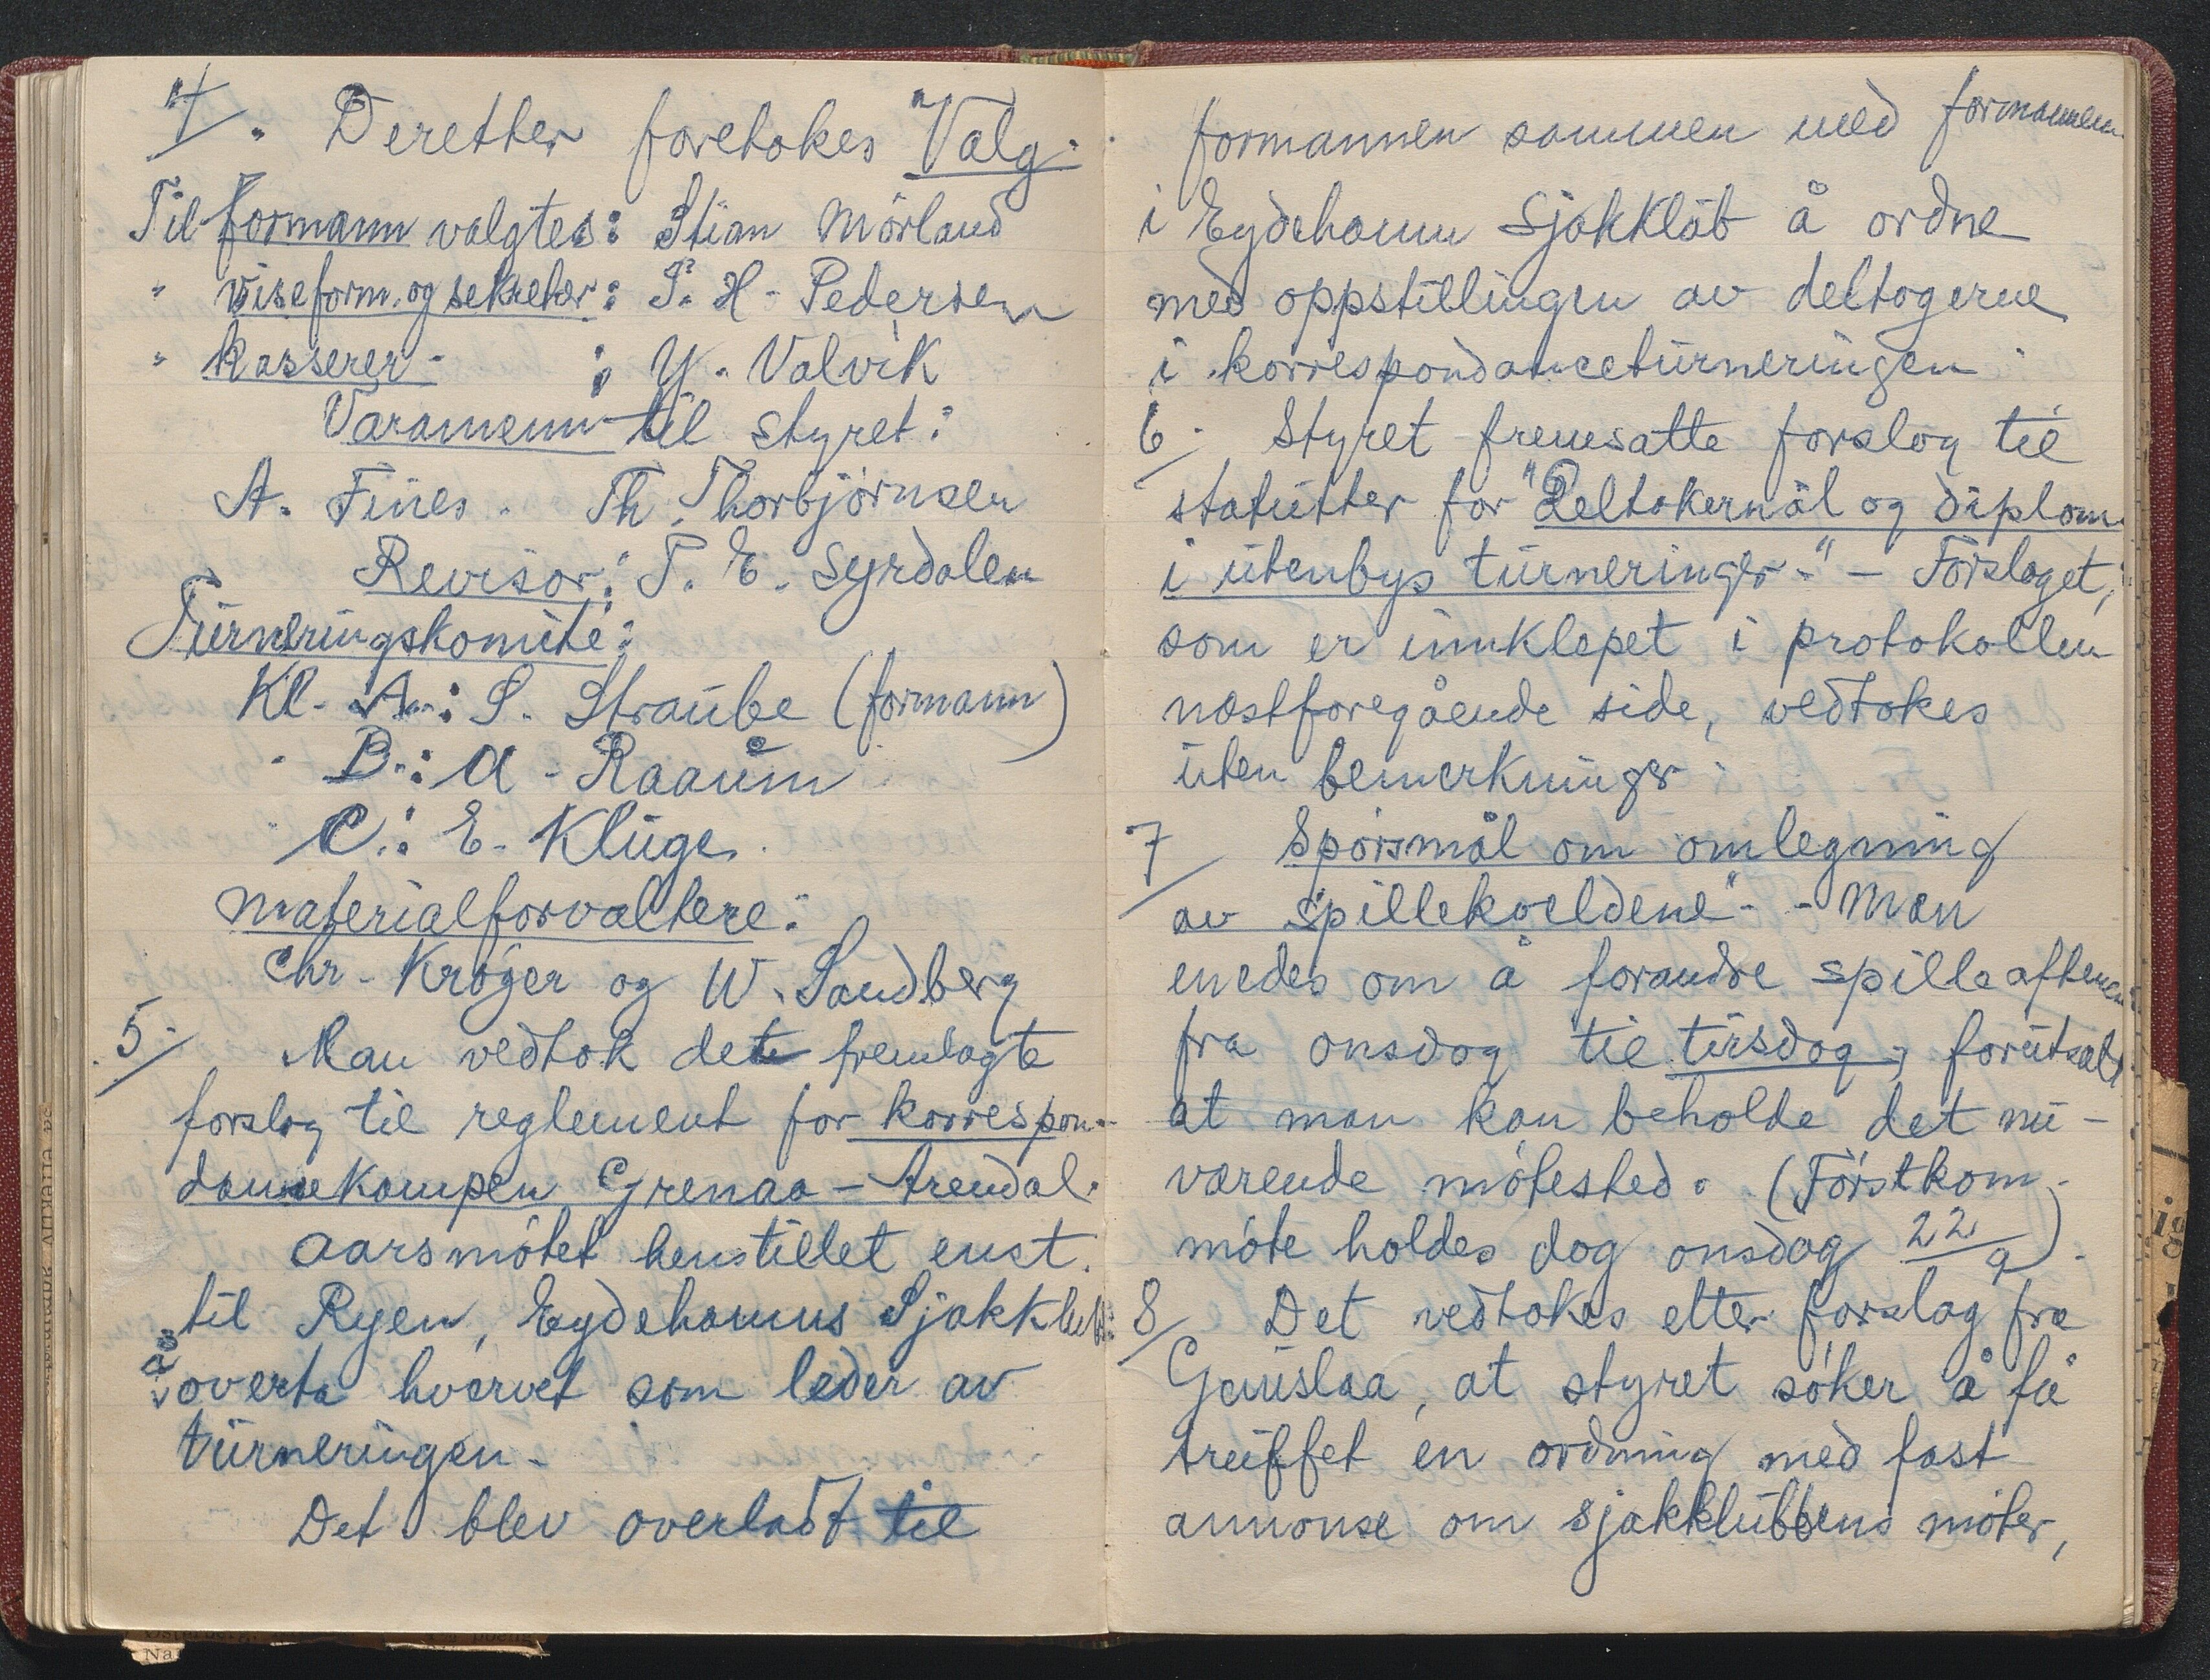 4/. Derefter foretokes "Valg."
Til formann valgtes: Stian Mørland
" viseform. og sekretær: P. H. Pedersen
" Kasserer. : Y. Valvik
Varamenn til styret:
A. Fines. Th. Thorbjørnsen
Revisor: T. E. Syrdalen
Turneringskomite:
Kl. A.: S. Straube (formann)
" B.: A. Raaum
" C.: E. Kluge.
Materialforvaltere:
Chr. Krøger og W. Sandberg
5./ Man vedtok det fremlagte
forslag til reglement for korrespon-
dansekampen Grenaa – Arendal.
Aarsmøtet henstillet enst.
til Ryen, Eydehamns Sjakklub
å overta hvervet som leder av
turneringen.
Det blev overladt til
formannen sammen med formannen
i Eydehamn Sjakklub å ordne
med oppstillingen av deltagerne
i korrespondanceturneringen.
6./ Styret fremsatte forslag til
statutter for "Deltakernål og diplom
i utenbys turneringer." – Forslaget,
som er innklepet i protokollen
næstforegående side, vedtokes
uten bemerkninger.
7/ Spørsmål om omlegning
av spillekveldene". - Man
enedes om å forandre spilleaftenen
fra onsdag til tirsdag, forutsatt
at man kan beholde det nu-
værende møtested. (Førstkom.
møte holdes dog onsdag 22/9).
8/ Det vedtokes etter forslag fra
Gauslaa, at styret søker å få
truffet en ordning med fast
annonse om sjakklubbens møter,